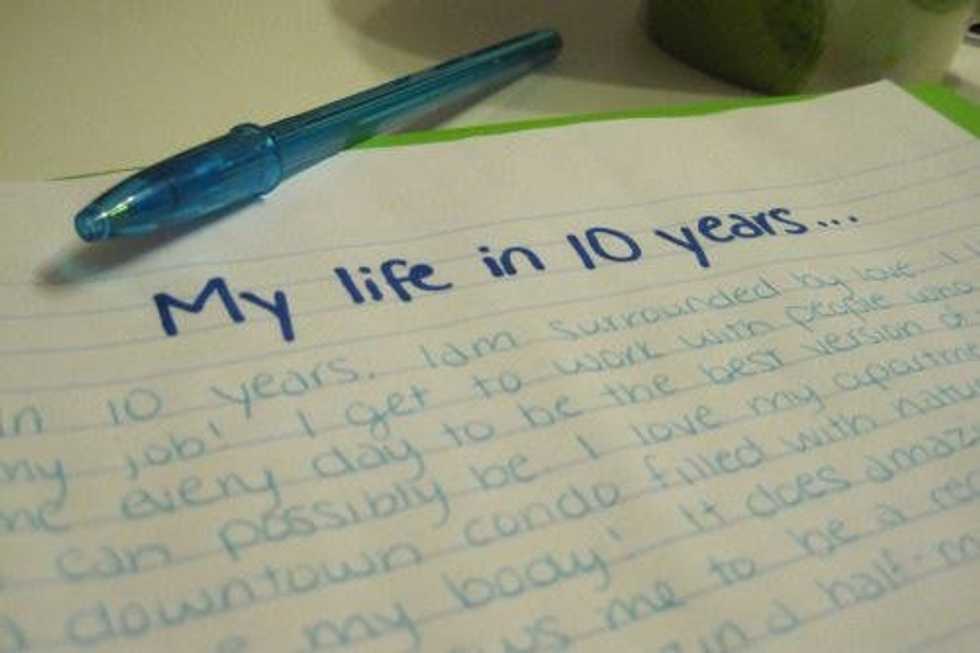 My life in 10 years...
in 10 years. I am surrounded by love. I
my job! I get to work with people who
me every day to be the best version of
can possibly be. I love my
downtown condo filled with
my body! It does
me to be a
in a half-